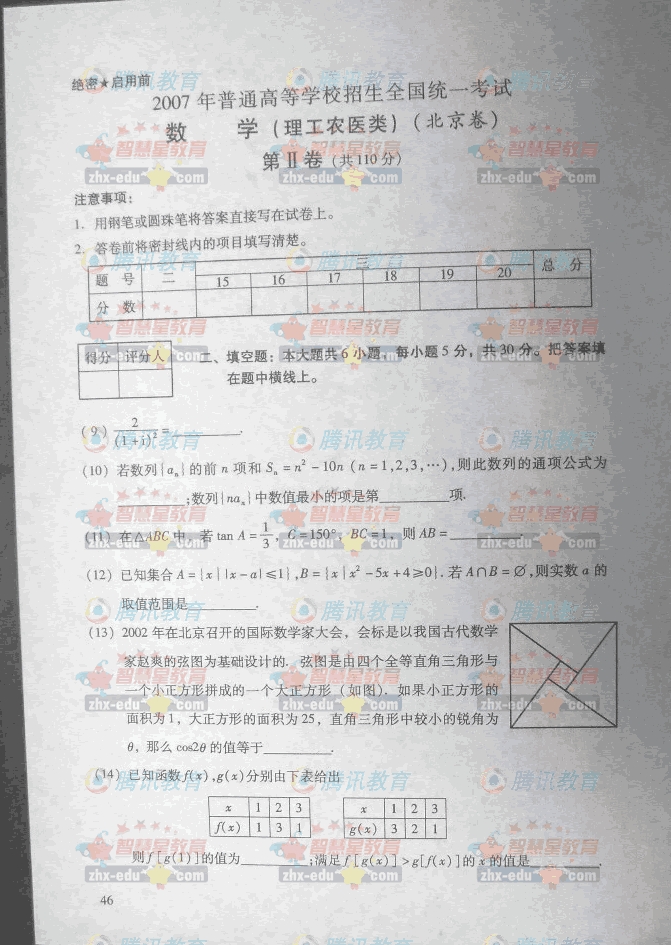 绝密★启用前
2007 年普通高等学校招生全国统一考试
数 学（理工农医类）（北京卷）
第Ⅱ卷（共110分）
注意事项：
1. 用钢笔或圆珠笔将答案直接写在试卷上。
2. 答卷前将密封线内的项目填写清楚。
题 号 二 三 总 分
15 16 17 18 19 20
分 数
得分 评分人
二、填空题：本大题共6小题，每小题5分，共30分。把答案填
在题中横线上。
(9) 2/(1+i)² = ______.
(10) 若数列{aₙ}的前 n 项和 Sₙ = n² - 10n (n = 1,2,3,…),则此数列的通项公式为
______;数列{naₙ}中数值最小的项是第______项.
(11) 在△ABC中，若 tan A = 1/3，C = 150°，BC = 1，则 AB = ______.
(12) 已知集合 A = {x | |x - a| ≤ 1},B = {x | x² - 5x + 4 ≥ 0}. 若 A∩B = ∅,则实数 a 的
取值范围是______.
(13) 2002 年在北京召开的国际数学家大会，会标是以我国古代数学
家赵爽的弦图为基础设计的. 弦图是由四个全等直角三角形与
一个小正方形拼成的一个大正方形（如图）. 如果小正方形的
面积为1，大正方形的面积为25，直角三角形中较小的锐角为
θ，那么 cos2θ 的值等于______.
(14) 已知函数 f(x),g(x)分别由下表给出
x 1 2 3 x 1 2 3
f(x) 1 3 1 g(x) 3 2 1
则 f[g(1)]的值为______;满足 f[g(x)] > g[f(x)]的 x 的值是______.
46
腾讯教育
智慧星教育
zhx-edu com